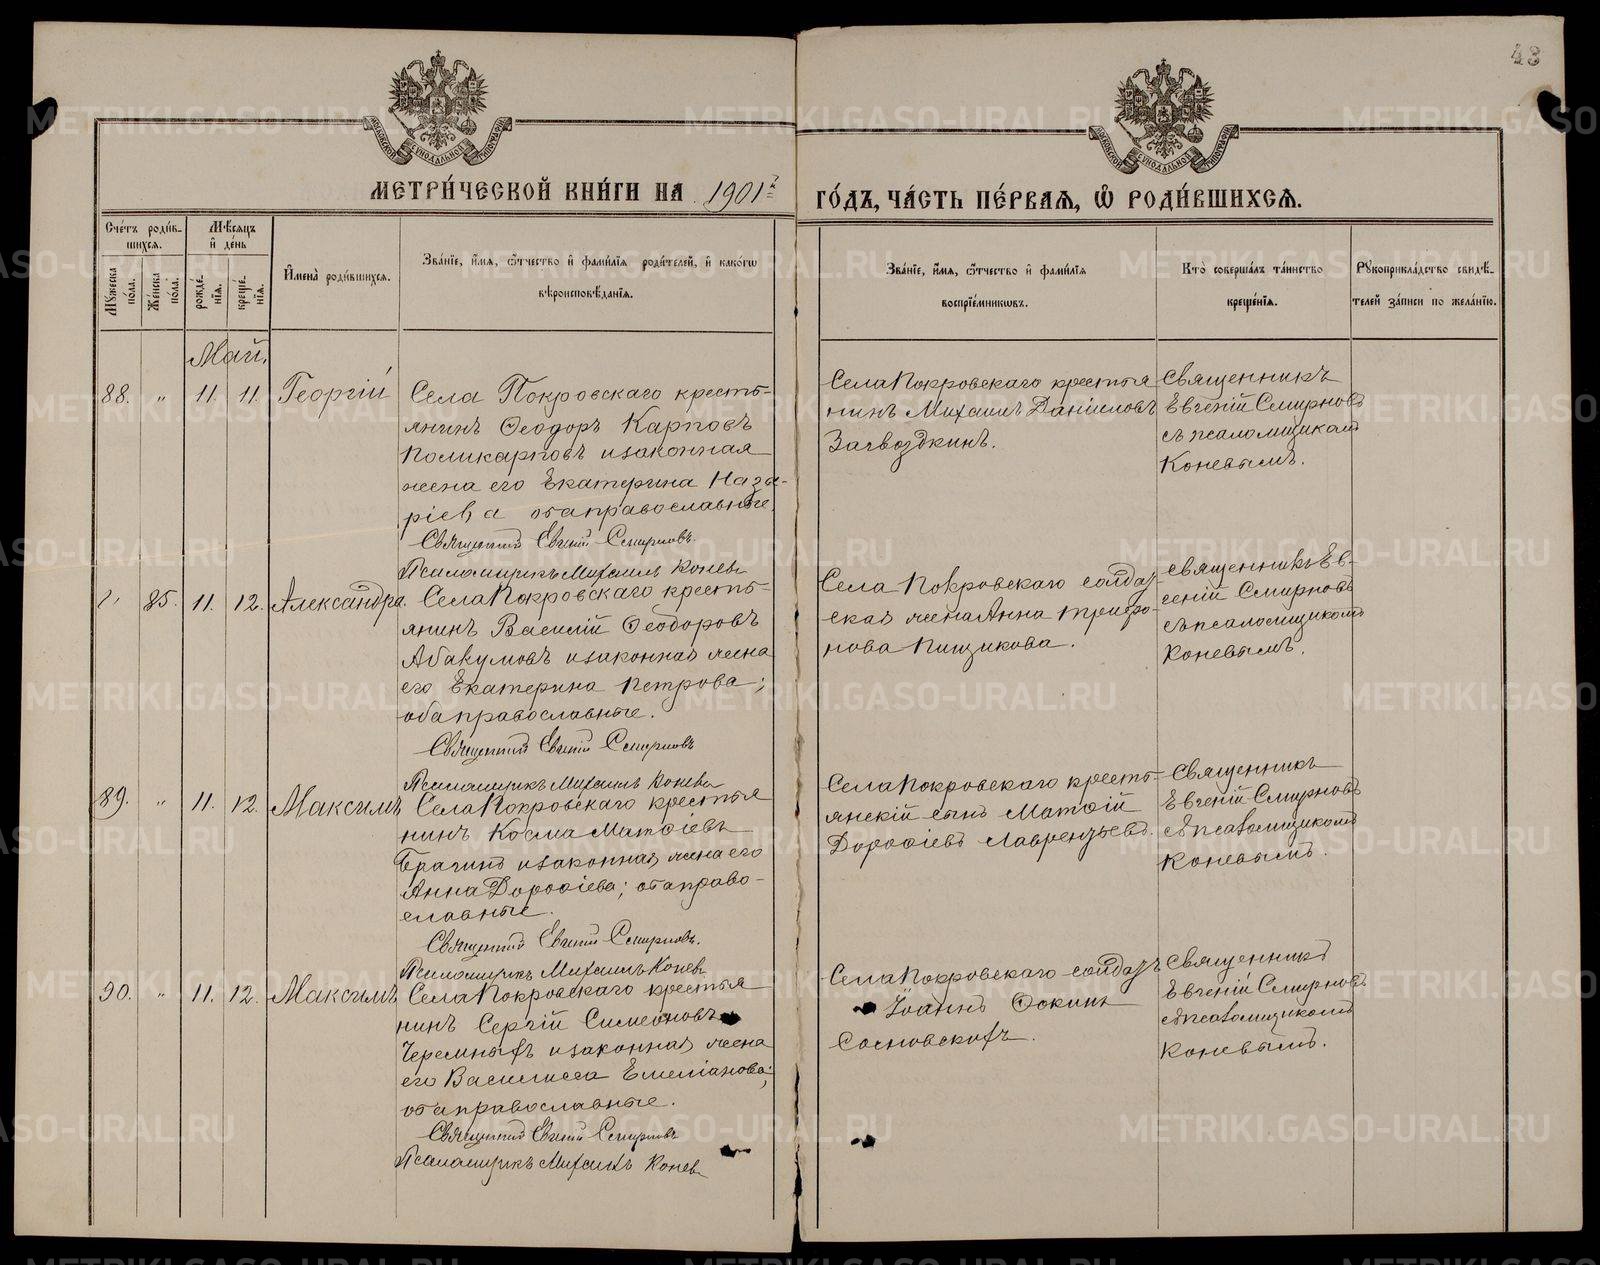 43
МОСКОВСКОЙ СѴНОДАЛЬНОЙ ТИПОГРАФІИ
МОСКОВСКОЙ СѴНОДАЛЬНОЙ ТИПОГРАФІИ
МЕТРИ́ЧЕСКОЙ КНИ́ГИ НА 1901 й
ГО́ДЪ, ЧА́СТЬ ПЕ́РВАѦ, Ѡ҆ РОДИ́ВШИХСѦ.
Сче́тъ роди́в-
шихсѧ.
Мꙋ́жеска по́ла.
Же́нска по́ла.
Мѣ́сѧцъ
и҆ де́нь
рожде́-
нїѧ.
креще́-
нїѧ.
И҆мена̀ роди́вшихсѧ.
Зва́нїе, и҆́мѧ, ѻ҆́тчество и҆ фами́лїѧ роди́телей, и҆ како́гѡ
вѣроисповѣ́данїѧ.
Зва́нїе, и҆́мѧ, ѻ҆́тчество и҆ фами́лїѧ
воспрїе́мникѡвъ.
Кто̀ соверша́лъ та́инство
креще́нїѧ.
Рꙋкоприкла́дство свидѣ́-
телей за́писи по жела́нїю.
Май.
88. „ 11. 11. Георгій
Села Покровскаго кресть-
янинъ Ѳеодоръ Карповъ
Поликарповъ и законная
жена его Екатерина Наза-
ріева оба православные.
Священникъ Евгеній Смирновъ
Псаломщикъ Михаилъ Коневъ
Села Покровскаго крестья
нинъ Михаилъ Даніиловъ
Загвоздкинъ.
Священникъ
Евгеній Смирновъ
съ псаломщикомъ
Коневымъ.
„ 85. 11. 12. Александра.
Села Покровскаго кресть-
янинъ Василій Ѳеодоровъ
Абакумовъ и законная жена
его Екатерина Петрова;
оба православные.
Священникъ Евгеній Смирновъ
Псаломщикъ Михаилъ Коневъ
Села Покровскаго солдат-
ская жена Анна Трифо-
нова Пищикова.
священникъ Ев-
геній Смирновъ
съ псаломщикомъ
Коневымъ.
89. „ 11. 12. Максимъ
Села Покровскаго крестья
нинъ Косма Матѳіевъ
Брагинъ и законная жена его
Анна Дороѳіева; оба право-
славные.
Священникъ Евгеній Смирновъ.
Псаломщикъ Михаилъ Коневъ
Села Покровскаго кресть-
янскій сынъ Матѳій
Дороѳіевъ Лаврентьевъ.
Священникъ
Евгеній Смирновъ
съ псаломщикомъ
Коневымъ.
90. „ 11. 12. Максимъ
Села Покровскаго крестья
нинъ Сергій Симеоновъ
Черемныхъ и законная жена
его Василисса Емеліанова;
оба православные.
Священникъ Евгеній Смирновъ
Псаломщикъ Михаилъ Коневъ
Села Покровскаго солдатъ
Іоаннъ Ѳокинъ
Сосновскихъ.
Священникъ
Евгеній Смирновъ
съ псаломщикомъ
Коневымъ.
METRIKI.GASO-URAL.RU